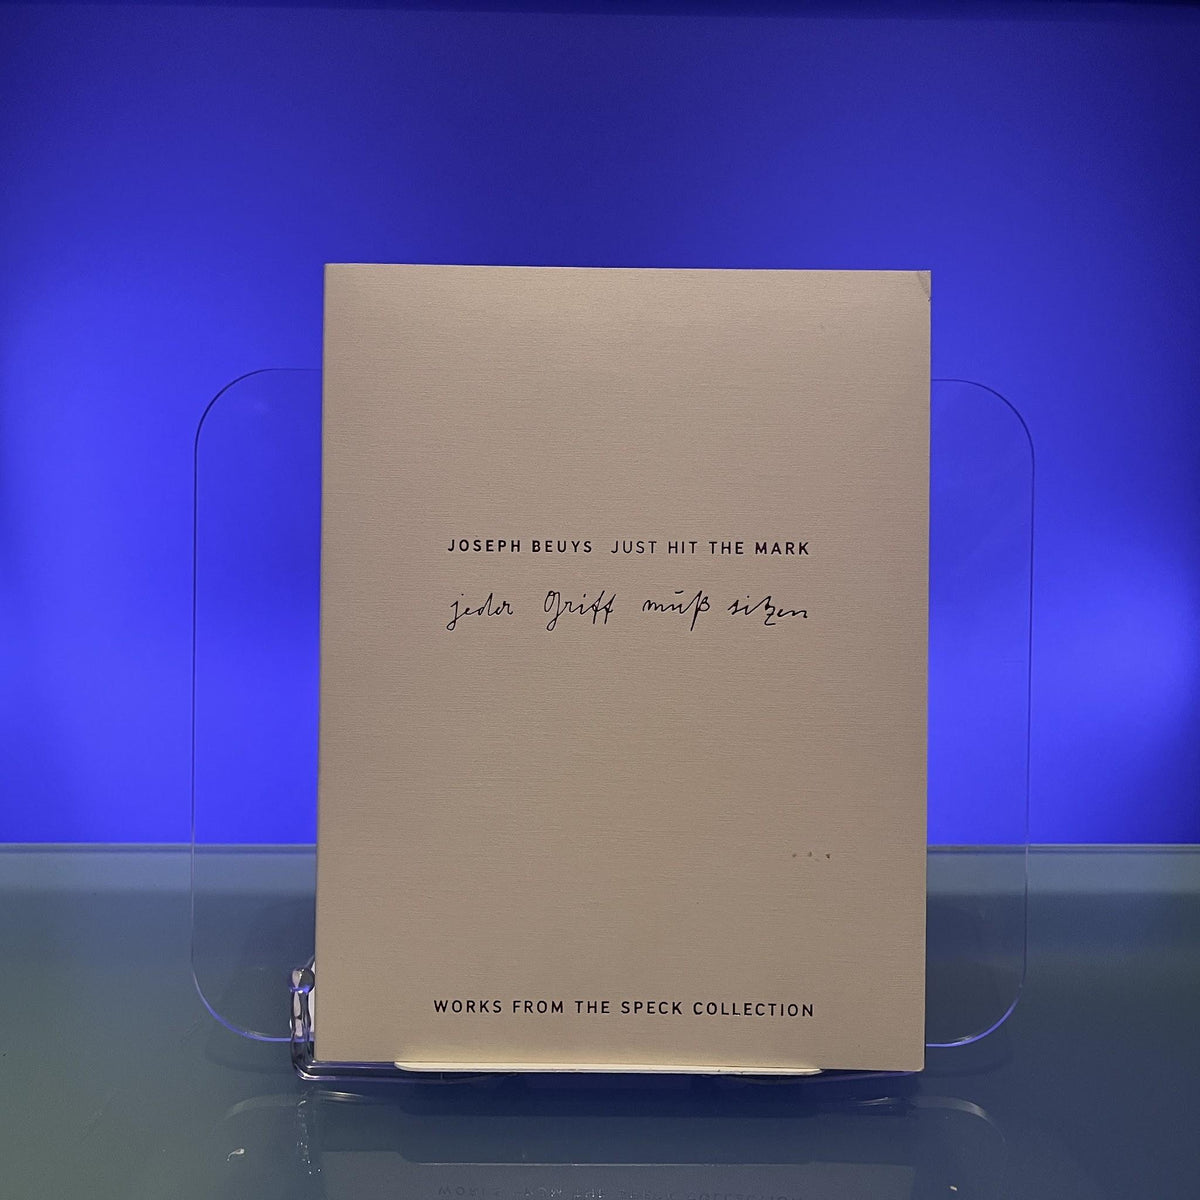 JOSEPH BEUYS JUST HIT THE MARK
jeder Griff muß sitzen
WORKS FROM THE SPECK COLLECTION